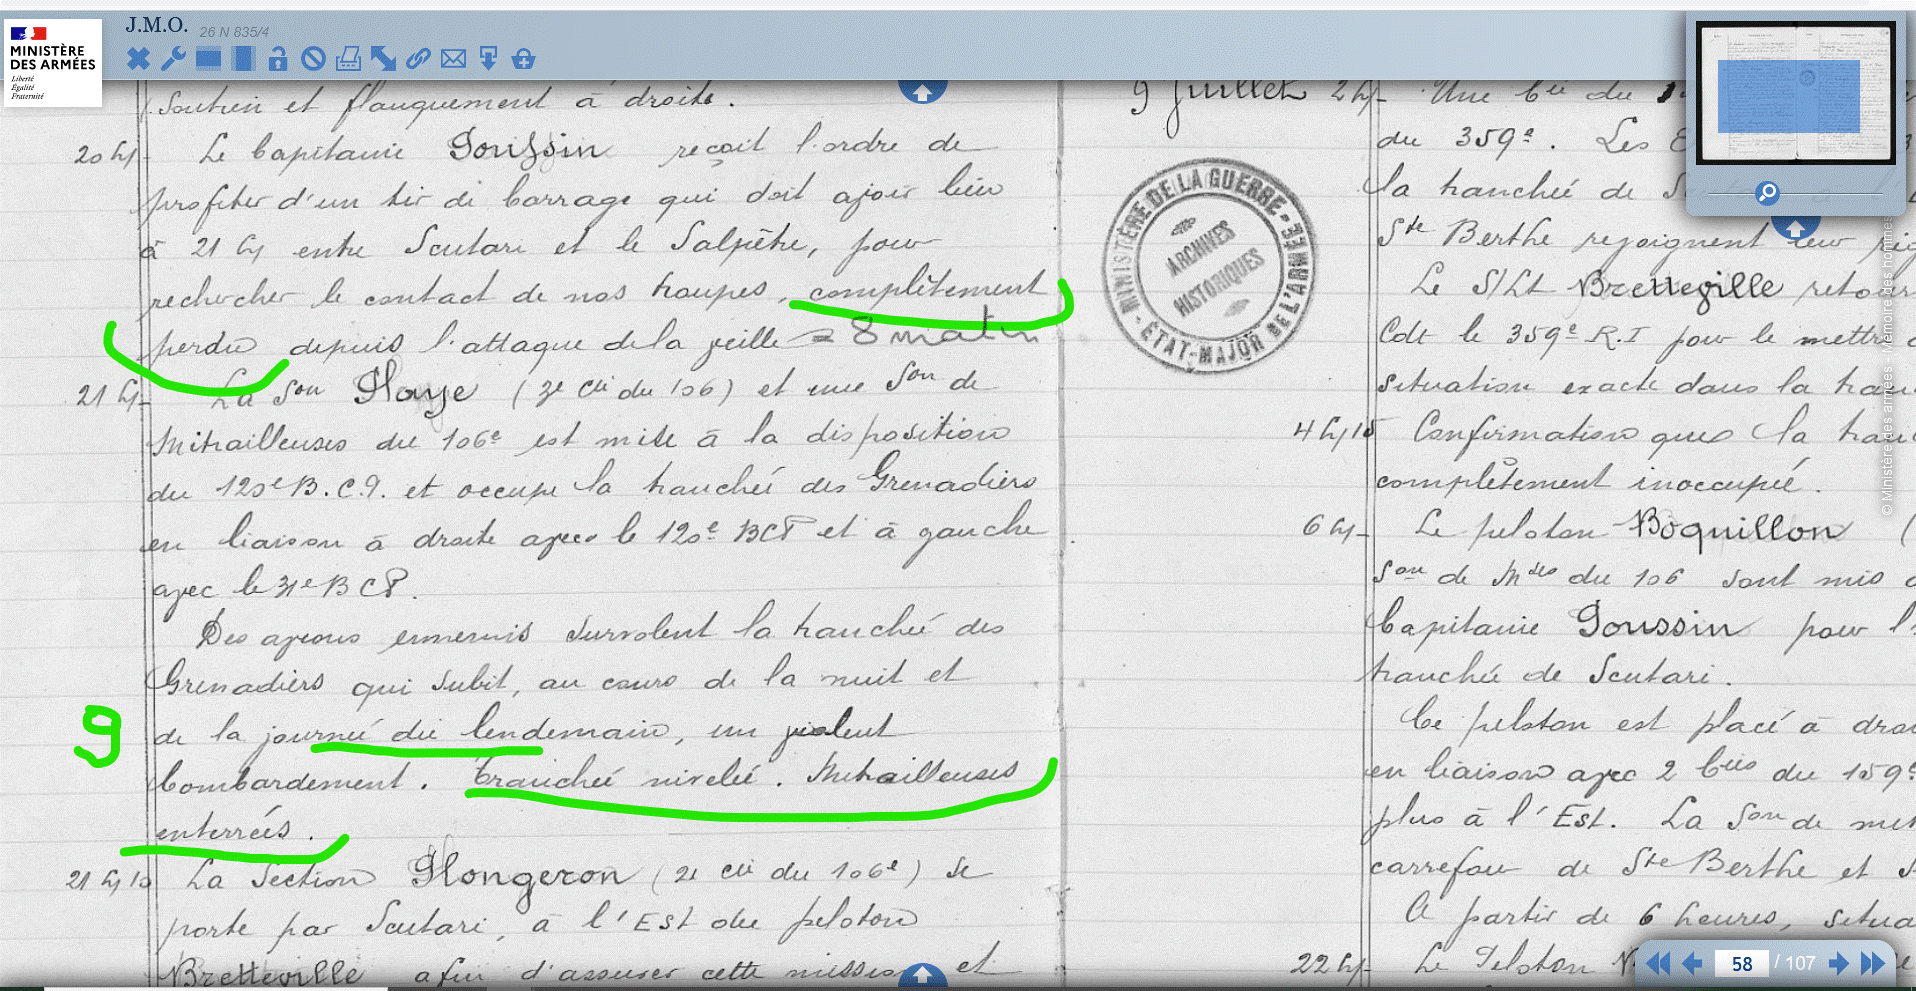 J.M.O. 26 N 835/4
MINISTÈRE
DES ARMÉES
Liberté
Égalité
Fraternité
Soutien et flanquement à droite.
20 h Le Capitaine Goussin reçoit l'ordre de
profiter d'un tir de barrage qui doit avoir lieu
à 21 h entre Scutari et le Salpêtre, pour
rechercher le contact de nos troupes, complètement
perdu depuis l'attaque de la veille = 8 matin
21 h La Son Haye (3e Cie du 106) et une Son de
Mitrailleuses du 106e est mise à la disposition
du 120e B.C.P. et occupe la tranchée des Grenadiers
en liaison à droite avec le 120e BCP et à gauche
avec le 31e BCP.
Des avions ennemis survolent la tranchée des
Grenadiers qui subit, au cours de la nuit et
9 de la journée du lendemain, un violent
bombardement. Tranchée nivelée. Mitrailleuses
enterrées.
21 h 10 La Section Hongeron (2e Cie du 106e) se
porte par Scutari, à l'Est du peloton
Bretteville afin d'assurer cette mission et
9 juillet 2 h Une Cie du
du 359e. Les
la tranchée de
Ste Berthe rejoignent leur
Le S/Lt Bretteville
Cdt le 359e R.I pour le mettre
situation exacte dans la
4 h 15 Confirmation que la
complètement inoccupée.
6 h Le peloton Boquillon (
Son de Mses du 106 sont mis
Capitaine Goussin pour
tranchée de Scutari.
Ce peloton est placé à
en liaison avec 2 Cies du 159e
plus à l'Est. La Son de
carrefour de Ste Berthe et
A partir de 6 heures,
22 h Le Peloton
MINISTÈRE DE LA GUERRE - ÉTAT-MAJOR DE L'ARMÉE
ARCHIVES
HISTORIQUES
© Ministère des armées - Mémoire des hommes
58 / 107